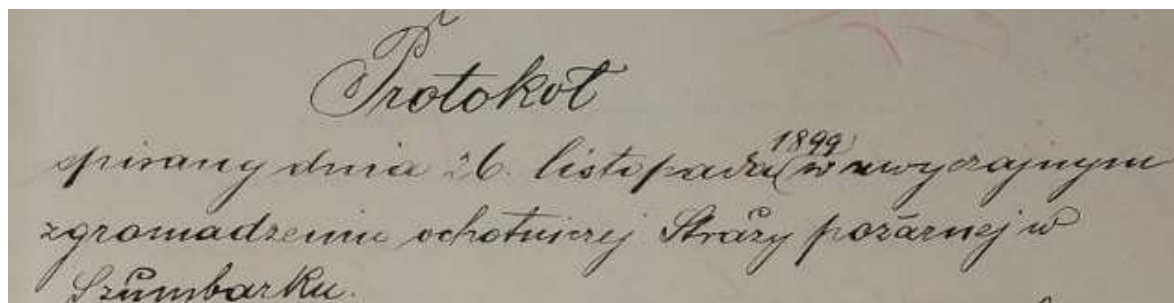 Protokoł
spisany dnia 26. listopada 1899 w zwyczajnym
zgromadzeniu ochotniczej Straży pożarnej w
Szumbarku.